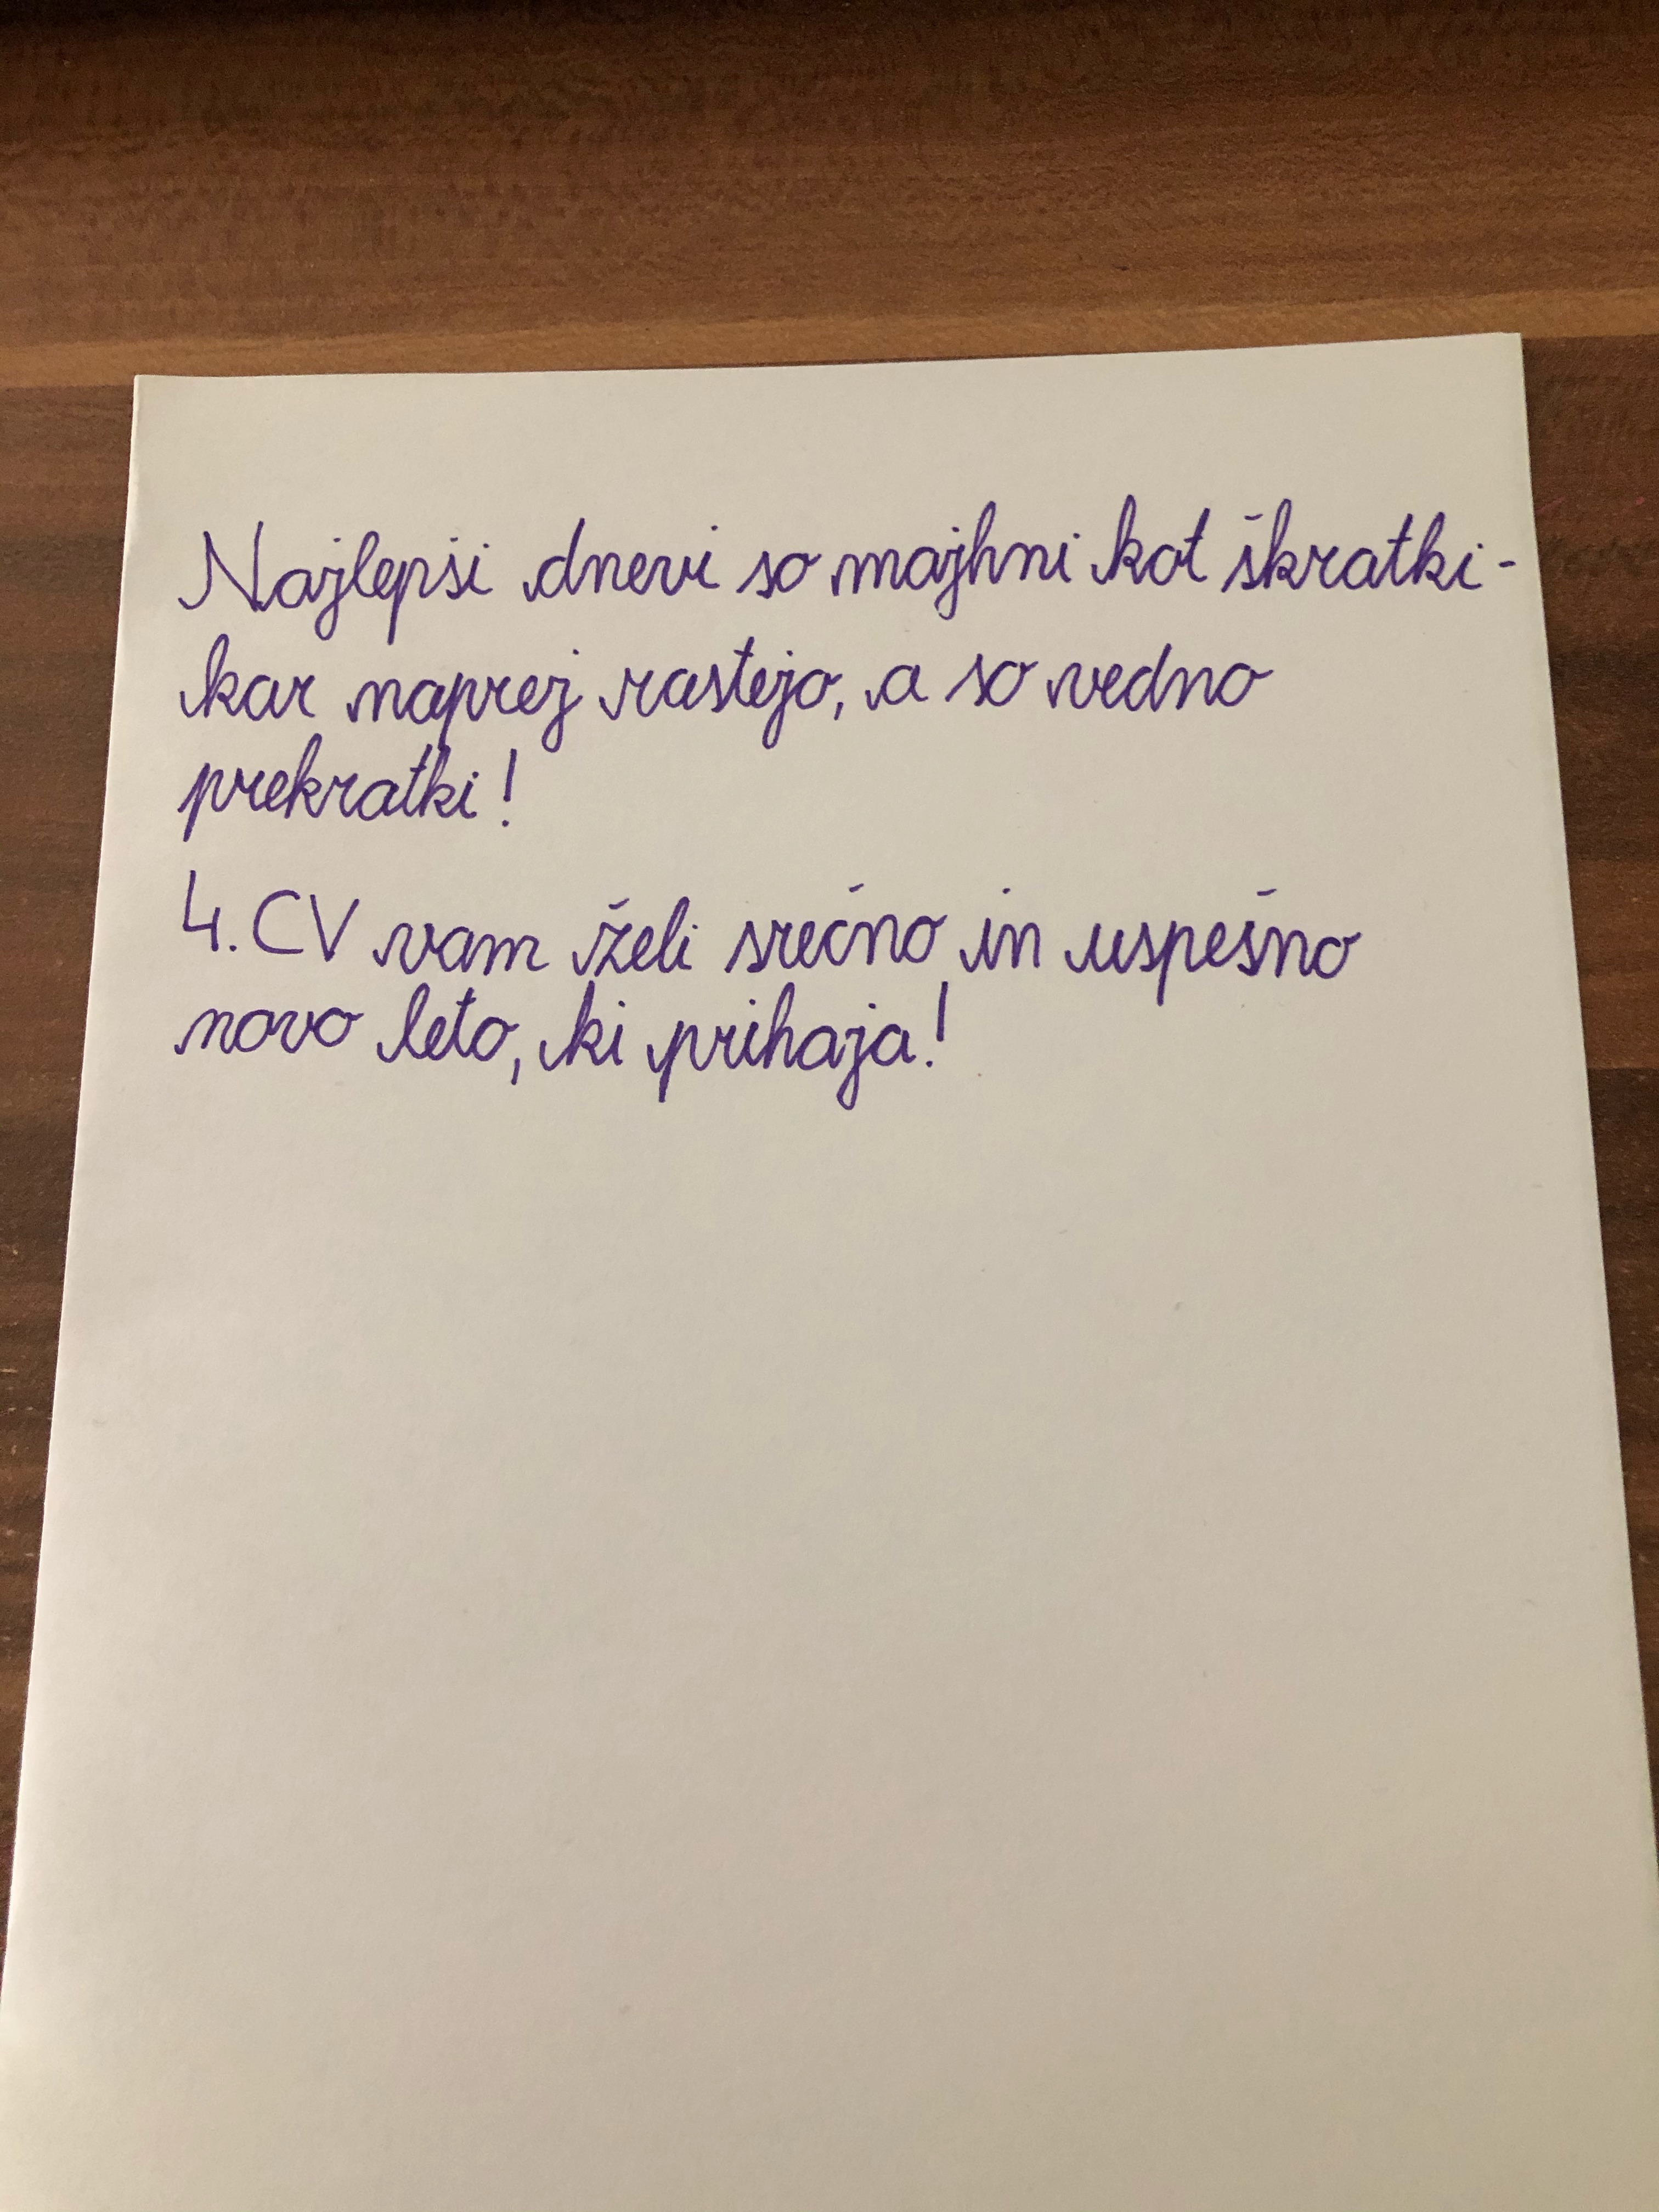 Najlepši dnevi so majhni kot škratki -
kar naprej rastejo, a so vedno
prekratki!
4. CV vam želi srečno in uspešno
novo leto, ki prihaja!